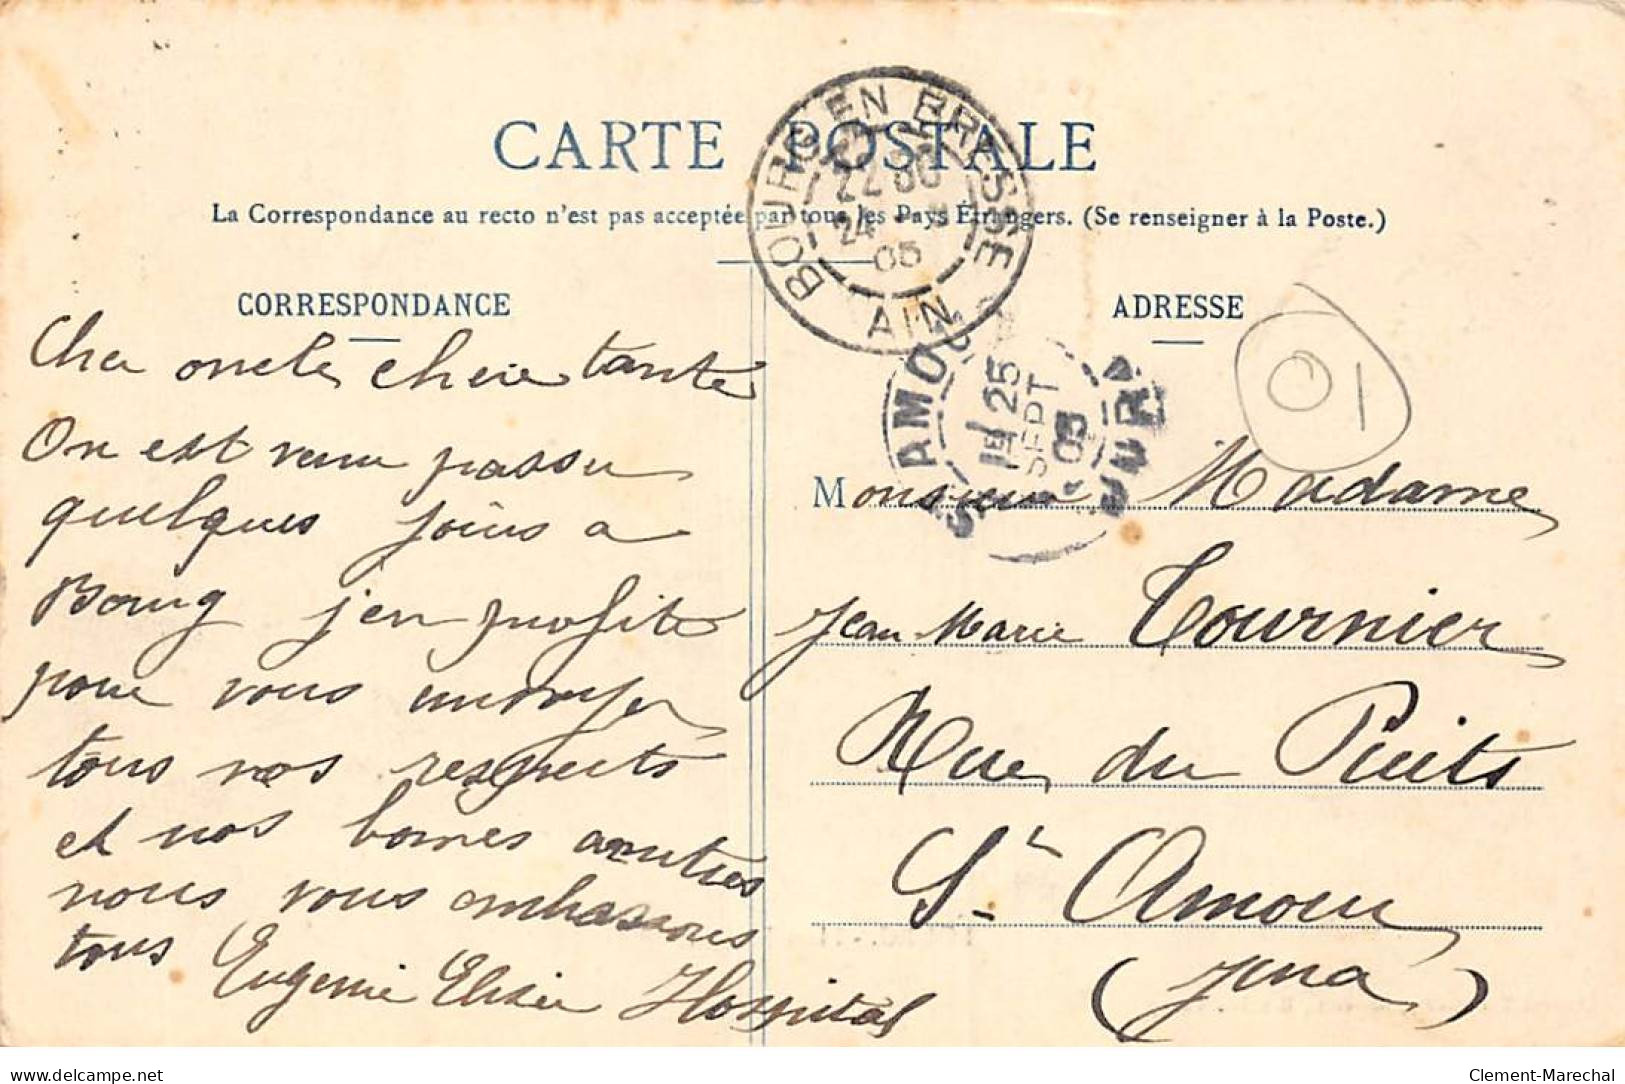 CARTE POSTALE
La Correspondance au recto n'est pas acceptée par tous les Pays Étrangers. (Se renseigner à la Poste.)
CORRESPONDANCE
Cher oncle, chère tante
On est venu passer
quelques jours a
Bourg j'en profite
pour vous envoyer
tous nos respects
et nos bonnes amitiés
nous vous embrassons
tous Eugenie Elisée Hospital
BOURG EN BRESSE
24
05
AIN
ADRESSE
01
ST AMOUR
25
SEPT
05
JURA
Monsieur Madame
Jean Marie Tournier
Rue du Puits
St Amour
(Jura)
delcampe.net
Clement-Marechal